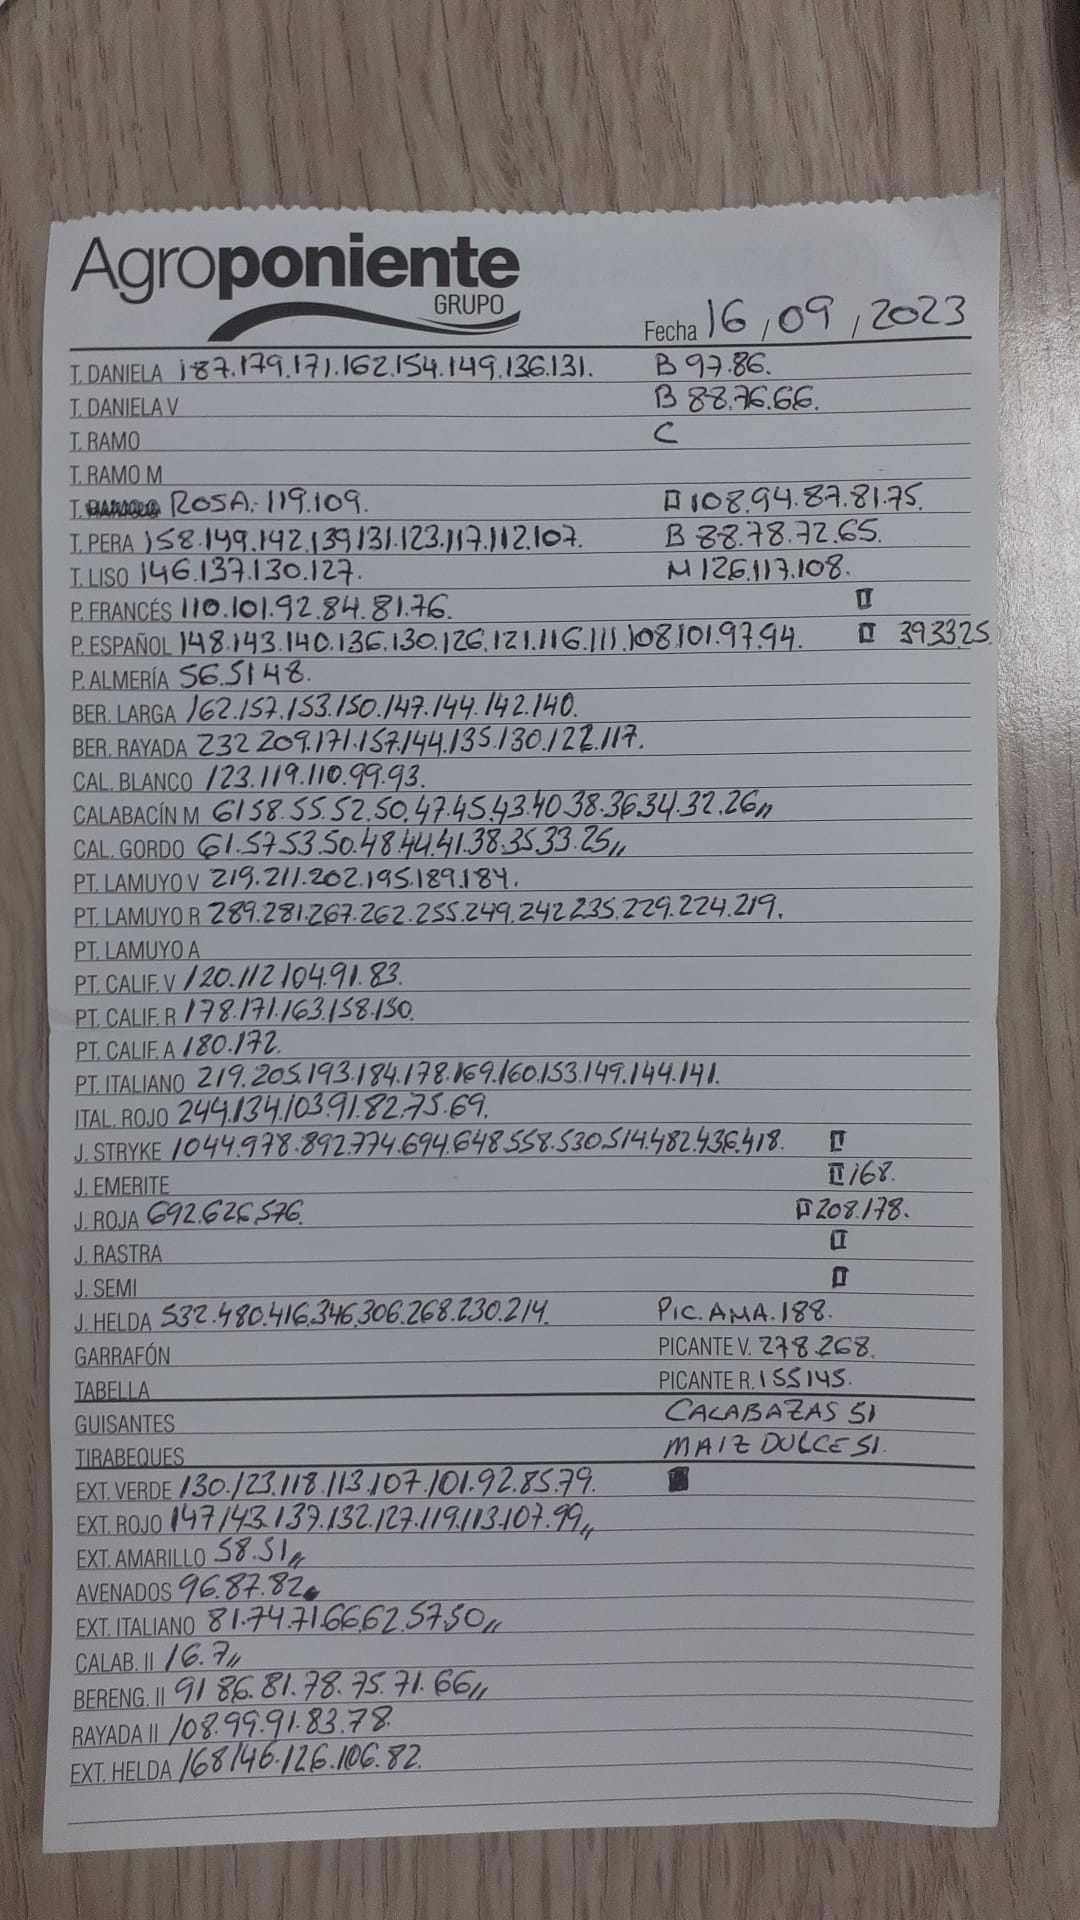 Agroponiente
GRUPO
Fecha 16, 09, 2023
T. DANIELA 187.179.171.162.154.149.136.131. B 97.86.
T. DANIELA V B 88.76.66.
T. RAMO C
T. RAMO M
T. ROSA. 119.109. II 108.94.87.81.75.
T. PERA 158.149.142.139.131.123.117.112.107. B 88.78.72.65.
T. LISO 146.137.130.127. M 126.117.108.
P. FRANCÉS 110.101.92.84.81.76. II
P. ESPAÑOL 148.143.140.136.130.126.121.116.111.108.101.97.94. II 39.33.25.
P. ALMERÍA 56.51.48.
BER. LARGA 162.157.153.150.147.144.142.140.
BER. RAYADA 232.209.171.157.144.135.130.122.117.
CAL. BLANCO 123.119.110.99.93.
CALABACÍN M 61.58.55.52.50.47.45.43.40.38.36.34.32.26,,
CAL. GORDO 61.57.53.50.48.44.41.38.35.33.25,,
PT. LAMUYO V 219.211.202.195.189.184.
PT. LAMUYO R 289.281.267.262.255.249.242.235.229.224.219.
PT. LAMUYO A
PT. CALIF. V 120.112.104.91.83.
PT. CALIF. R 178.171.163.158.150.
PT. CALIF. A 180.172.
PT. ITALIANO 219.205.193.184.178.169.160.153.149.144.141.
ITAL. ROJO 244.134.103.91.82.75.69.
J. STRYKE 1044.978.892.774.694.648.558.530.514.482.436.418. II
J. EMERITE II 168.
J. ROJA 692.626.576. II 208.178.
J. RASTRA II
J. SEMI II
J. HELDA 532.480.416.346.306.268.230.214. PIC. AMA. 188.
GARRAFÓN PICANTE V. 278.268.
TABELLA PICANTE R. 155.145.
GUISANTES CALABAZAS 51
TIRABEQUES MAIZ DULCE 51.
EXT. VERDE 130.123.118.113.107.101.92.85.79.
EXT. ROJO 147.143.137.132.127.119.113.107.99,,
EXT. AMARILLO 58.51,,
AVENADOS 96.87.82.
EXT. ITALIANO 81.74.71.66.62.57.50,,
CALAB. II 16.7,,
BERENG. II 91.86.81.78.75.71.66,,
RAYADA II 108.99.91.83.78.
EXT. HELDA 168.146.126.106.82.